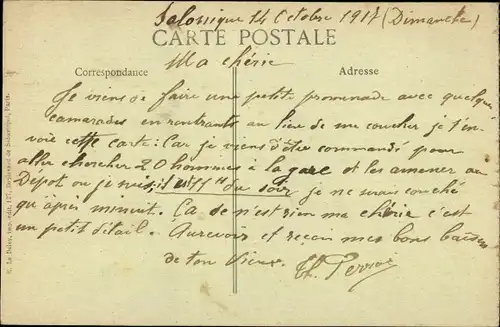 Salonique 14 Octobre 1917 (Dimanche)
CARTE POSTALE
Ma chérie
Correspondance
Adresse
Je viens de faire une petite promenade avec quelques
camarades en rentrants au lieu de me coucher je t'en-
voie cette carte. Car je viens d'être commandé pour
aller chercher 20 hommes à la gare et les amener au
Dépot ou je suis, il est 11H du soir je ne serais couché
qu'après minuit. Ça se n'est rien ma chérie c'est
un petit détail. Aurevoir et reçoin mes bons baisers
de ton Vieux.